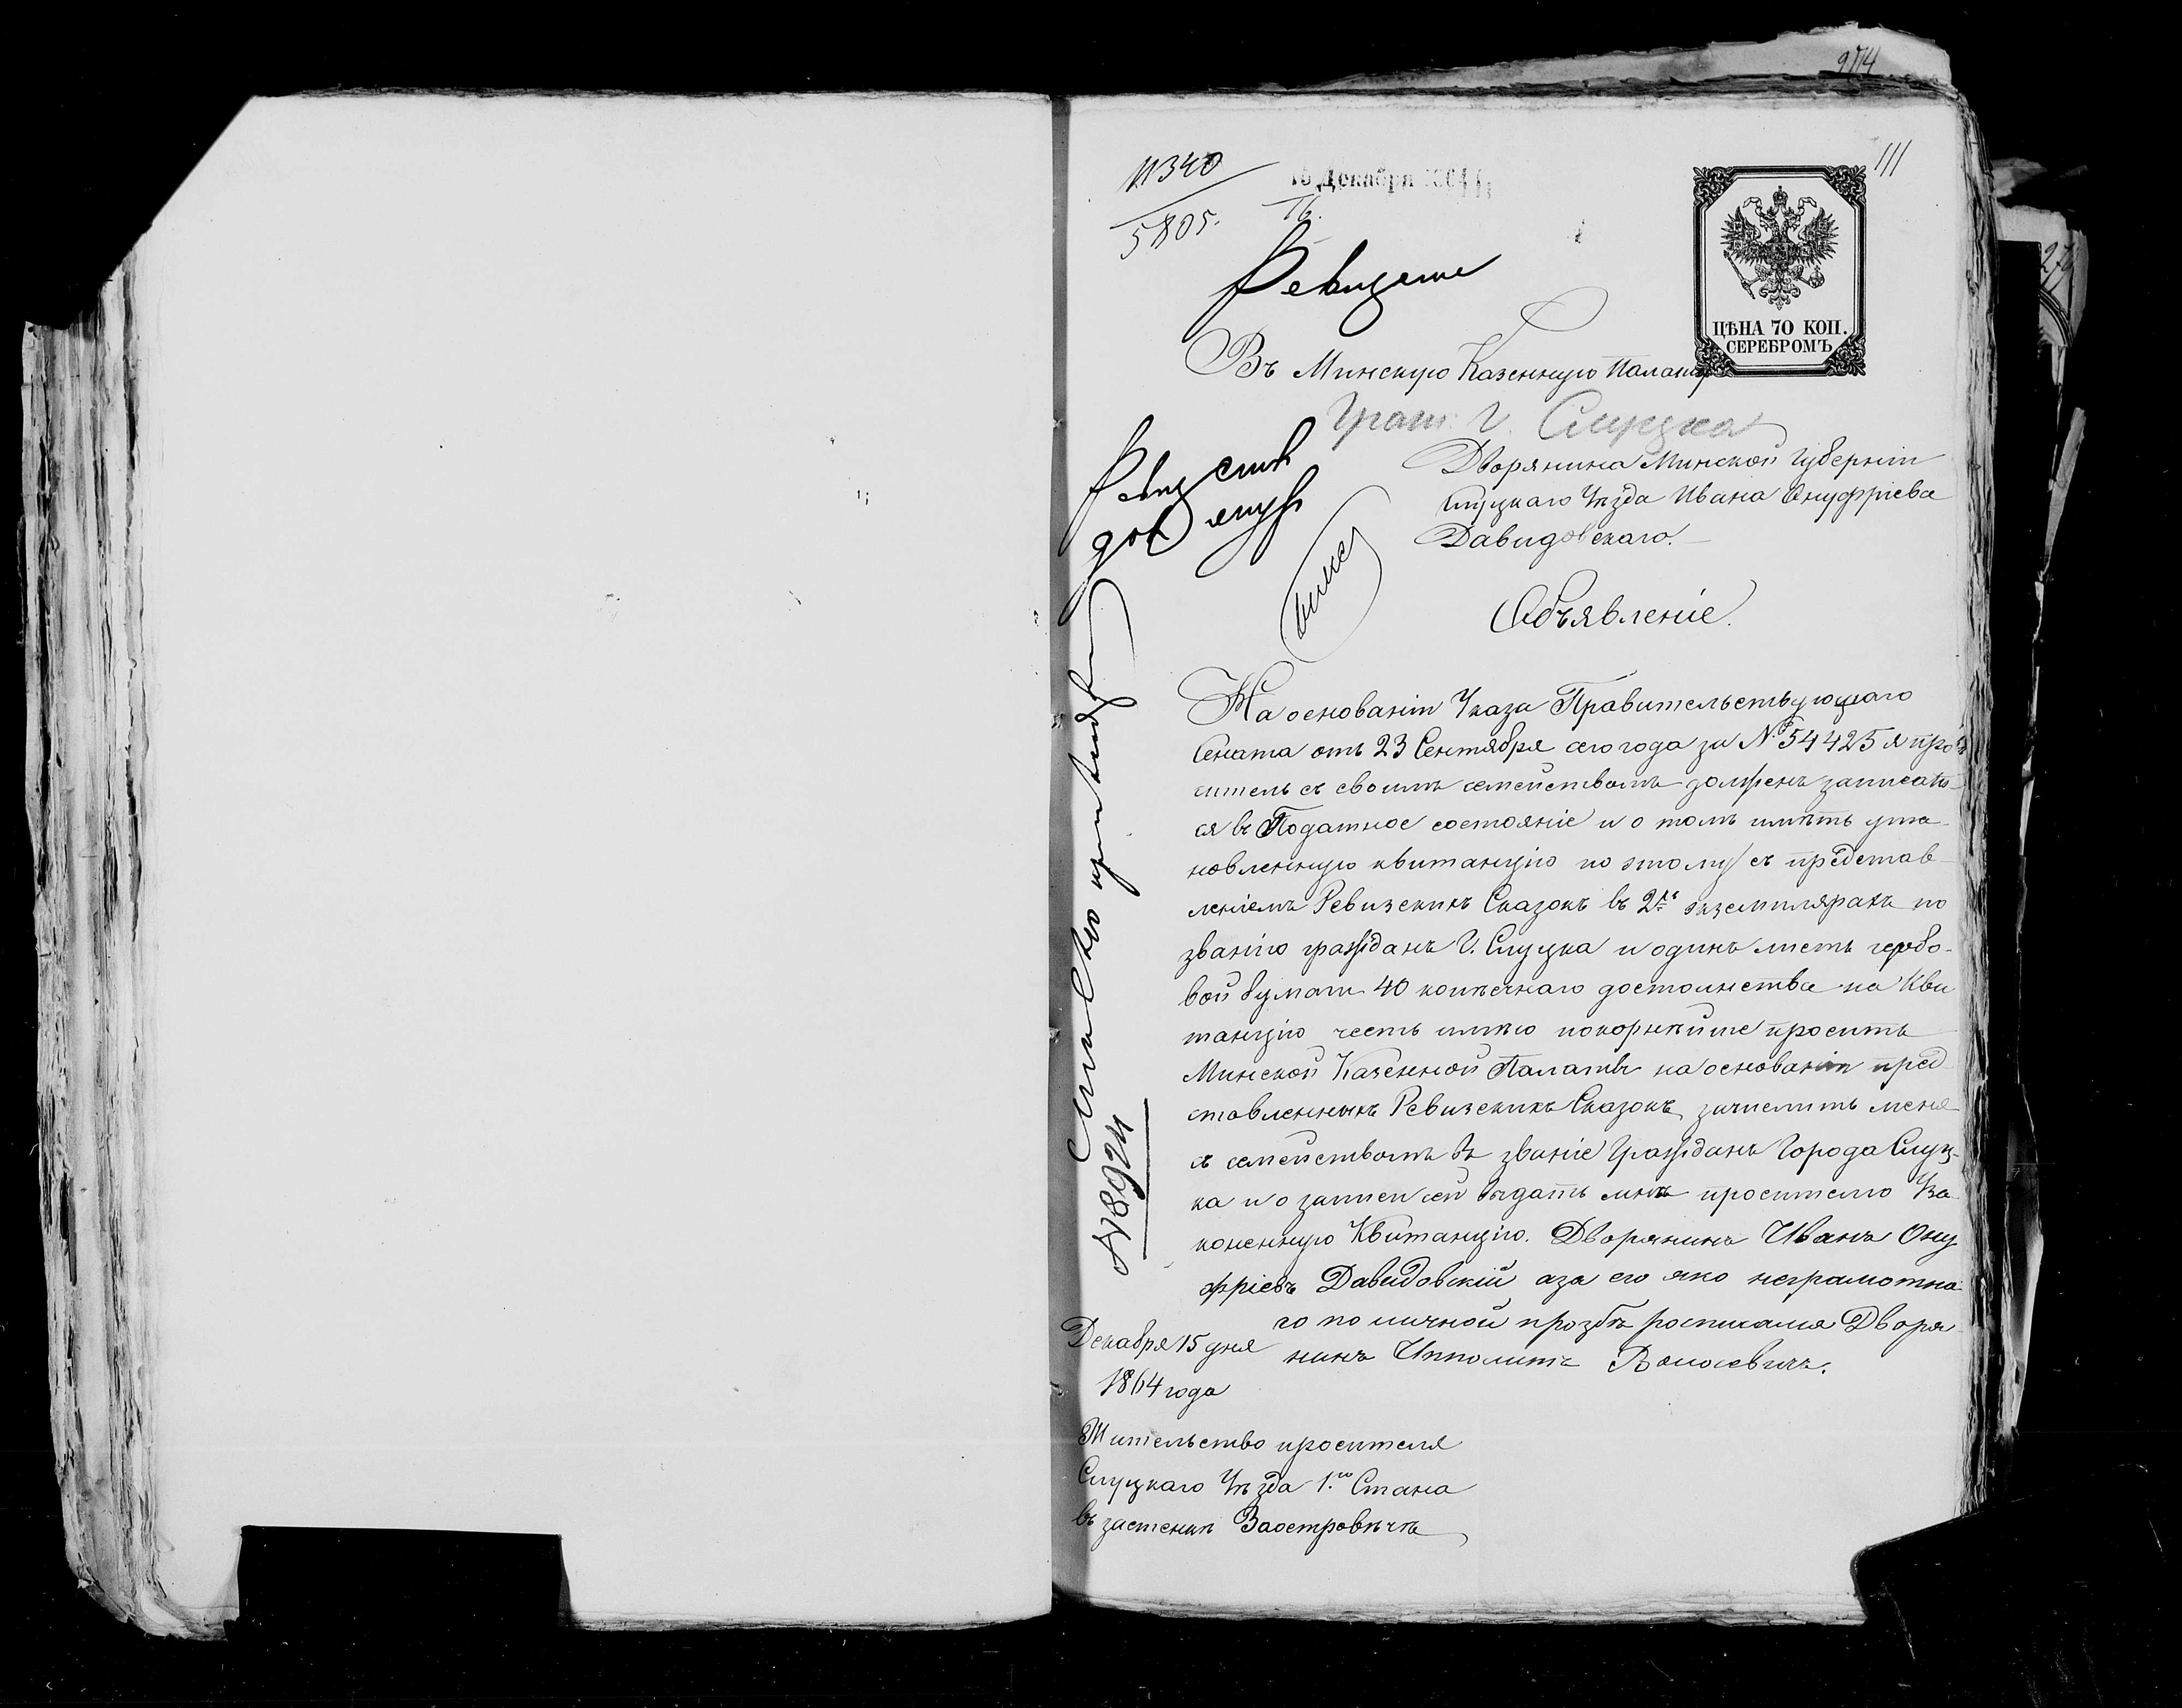 274
111
11340
5805.
16 Декабря 1864
ЦѢНА 70 КОП.
СЕРЕБРОМЪ
Въ Минскую Казенную Палату
Граж. Г. Слуцка
Дворянина Минской Губерніи
Слуцкаго Уѣзда Ивана Онуфріева
Давидовскаго.
Объявленіе.
На основаніи Указа Правительствующаго
Сената отъ 23 Сентября сего года за № 54425 я про
ситель съ своимъ семействомъ долженъ записать
ся въ Податное состояніе и о томъ имѣть уста
новленную квитанцію по этому съ представ
леніемъ Ревизскихъ Сказокъ въ 2хъ экземплярахъ по
званію гражданъ Г. Слуцка и одинъ листъ гербо-
вой бумаги 40 копѣечнаго достоинства на Кви
танцію честь имѣю покорнѣйше просить
Минской Казенной Палаты на основаніи пред
ставленныхъ Ревизскихъ Сказокъ зачислить меня
съ семействомъ въ званіе Гражданъ Города Слуц-
ка и о записи сей выдать мнѣ просителю Уза
коненную Квитанцію. Дворянинъ Иванъ Ону
фріевъ Давидовскій а за его яко неграмотна
го по личной прозбѣ росписался Дворя
нинъ Ипполитъ
Декабря 15 дня
1864 года
Жительство просителя
Слуцкаго Уѣзда 1.го Стана
въ застенкѣ Заостровѣчѣ
№ 8924